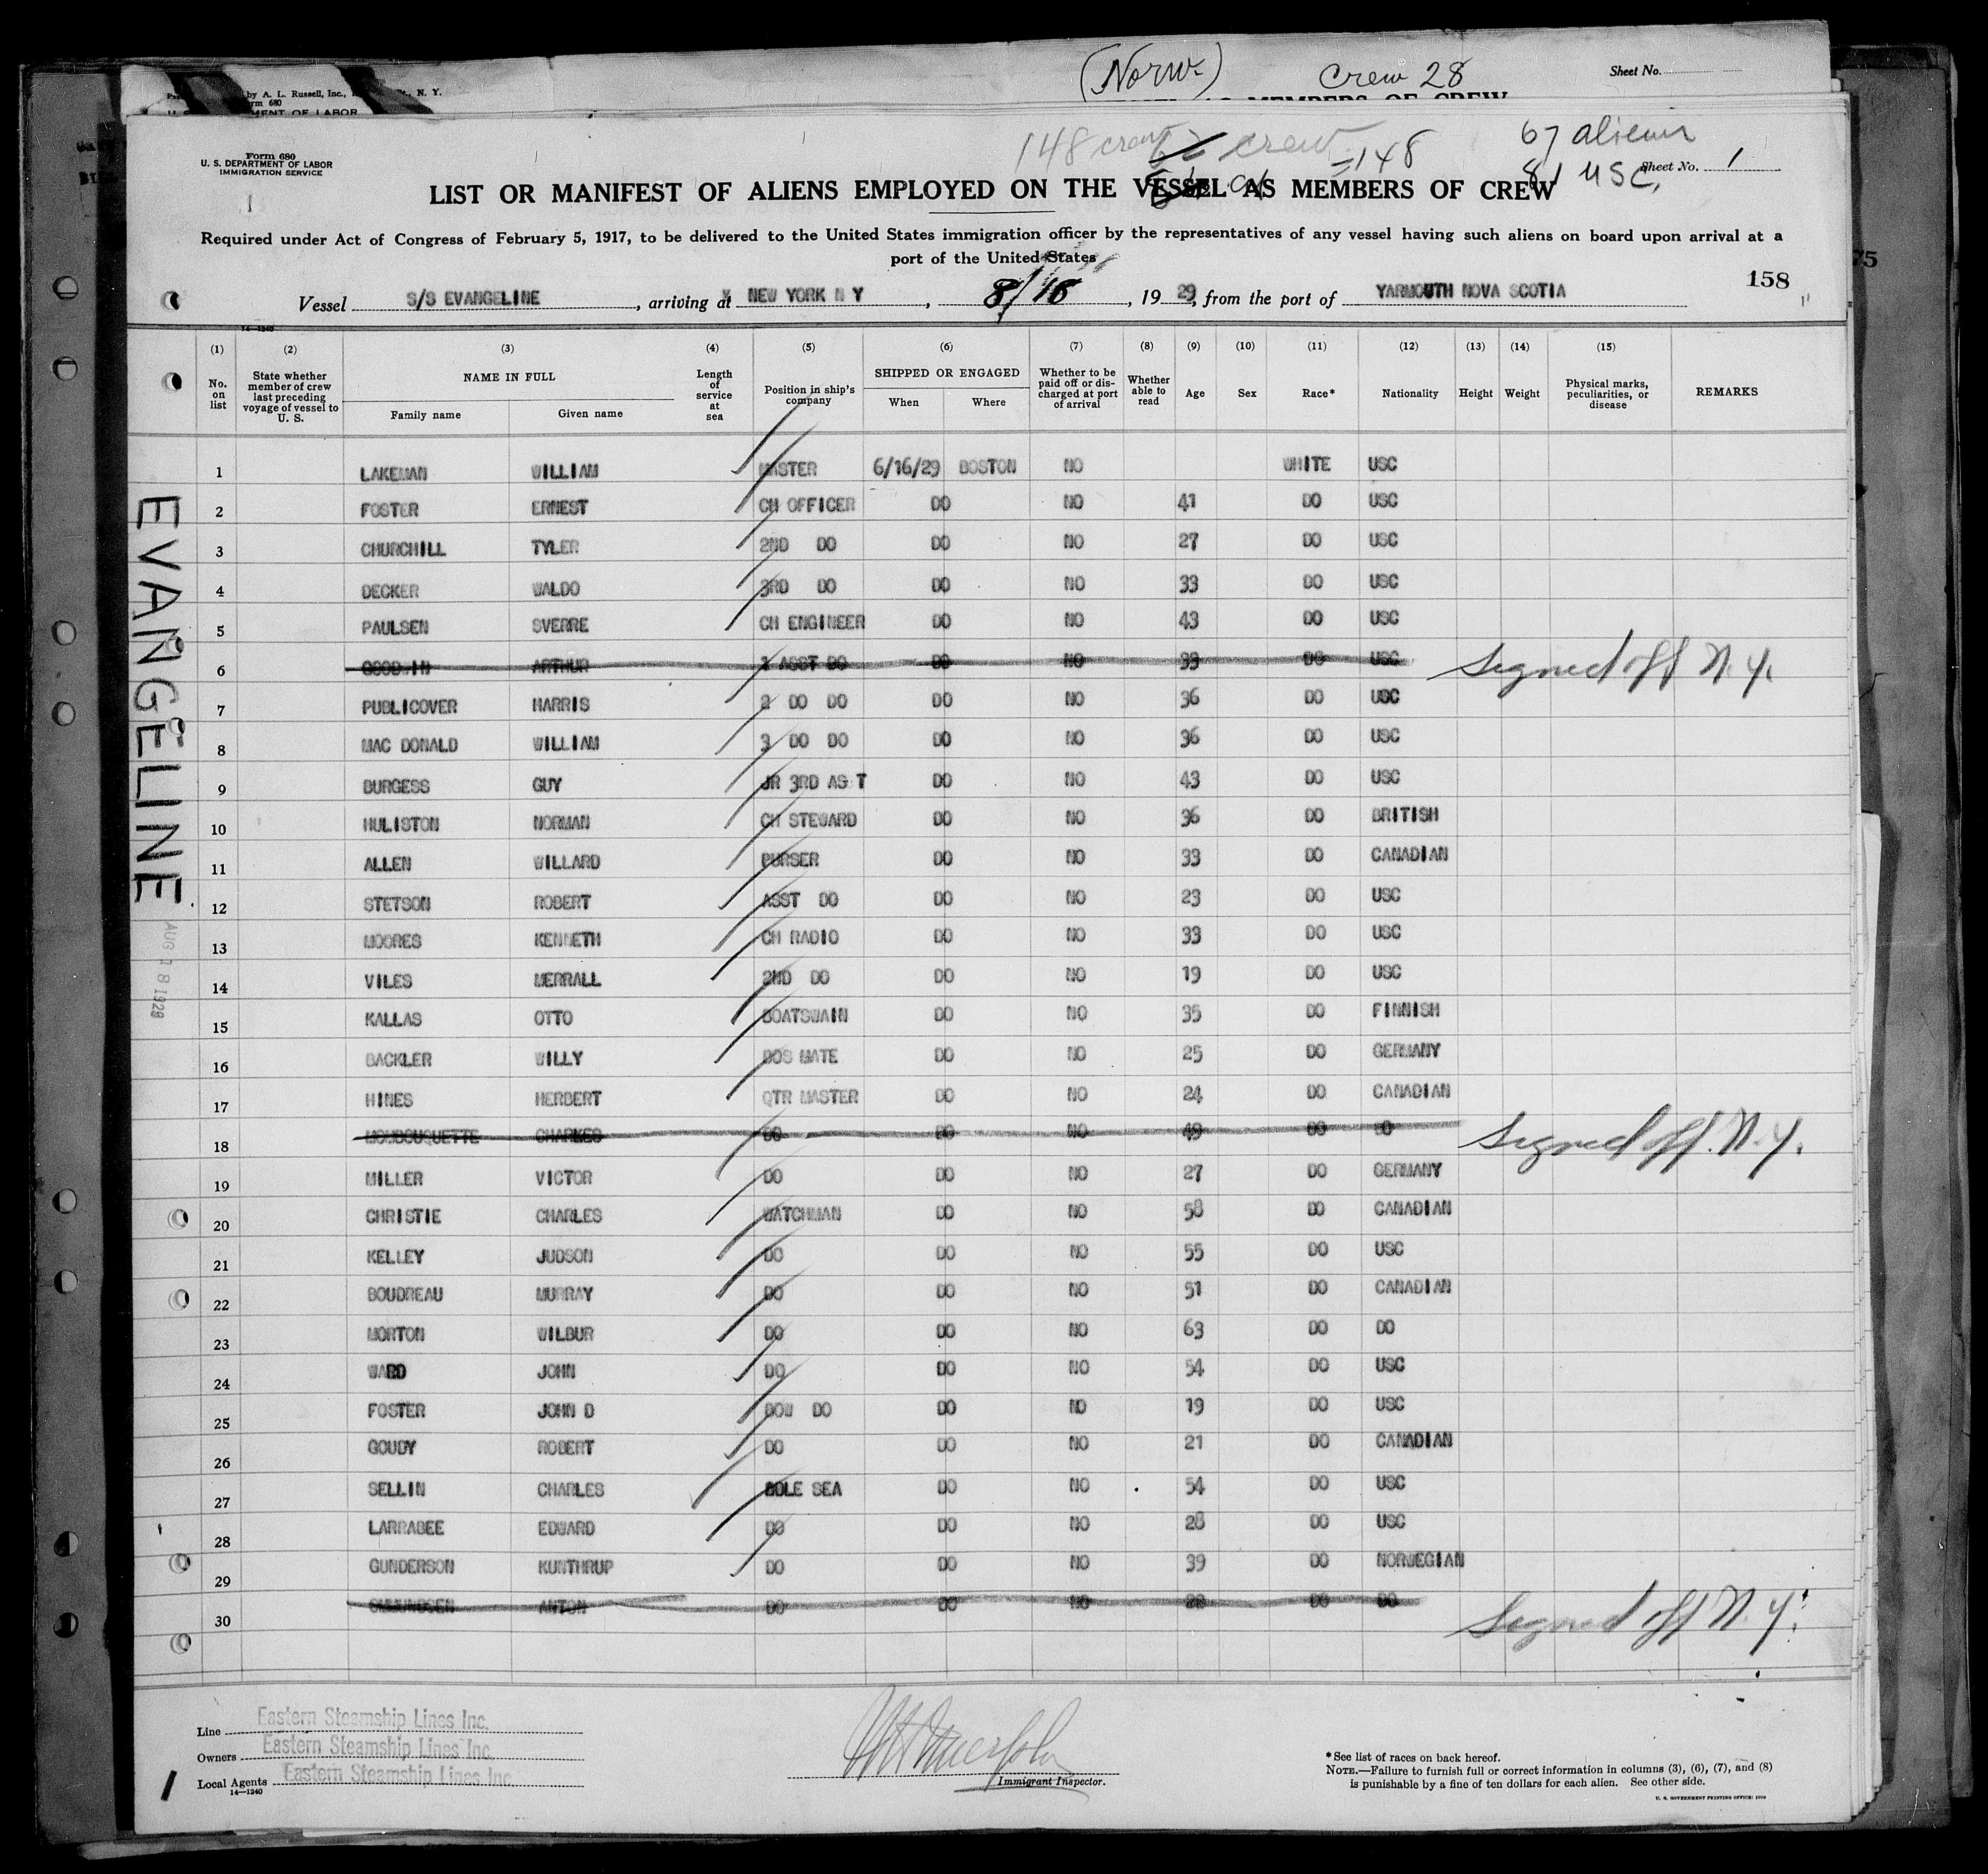 (Norw.) Crew 28 Sheet No.
by A. L. Russell, Inc., N. Y.
148 crew crew =148 67 aliens
81 USC.
Form 680
U. S. DEPARTMENT OF LABOR
IMMIGRATION SERVICE
Sheet No. 1
LIST OR MANIFEST OF ALIENS EMPLOYED ON THE VESSEL AS MEMBERS OF CREW
Required under Act of Congress of February 5, 1917, to be delivered to the United States immigration officer by the representatives of any vessel having such aliens on board upon arrival at a
port of the United States
158
Vessel S/S EVANGELINE, arriving at NEW YORK N Y, 8/18, 1929, from the port of YARMOUTH NOVA SCOTIA
14-1240
(1) (2) (3) (4) (5) (6) (7) (8) (9) (10) (11) (12) (13) (14) (15)
No. on list State whether member of crew last preceding voyage of vessel to U. S. NAME IN FULL Family name Given name Length of service at sea Position in ship's company SHIPPED OR ENGAGED When Where Whether to be paid off or discharged at port of arrival Whether able to read Age Sex Race* Nationality Height Weight Physical marks, peculiarities, or disease REMARKS
1 LAKEMAN WILLIAM MASTER 6/16/29 BOSTON NO WHITE USC
2 FOSTER ERNEST CH OFFICER DO NO 41 DO USC
3 CHURCHILL TYLER 2ND DO DO NO 27 DO USC
4 DECKER WALDO 3RD DO DO NO 33 DO USC
5 PAULSEN SVERRE CH ENGINEER DO NO 43 DO USC
6 GOODWIN ARTHUR 1 ASST DO DO NO 33 DO USC Signed off N.Y.
7 PUBLICOVER HARRIS 2 DO DO DO NO 36 DO USC
8 MAC DONALD WILLIAM 3 DO DO DO NO 36 DO USC
9 BURGESS GUY JR 3RD AS T DO NO 43 DO USC
10 HULISTON NORMAN CH STEWARD DO NO 36 DO BRITISH
11 ALLEN WILLARD PURSER DO NO 33 DO CANADIAN
12 STETSON ROBERT ASST DO DO NO 23 DO USC
13 MOORES KENNETH CH RADIO DO NO 33 DO USC
14 VILES MERRALL 2ND DO DO NO 19 DO USC
15 KALLAS OTTO BOATSWAIN DO NO 35 DO FINNISH
16 BACKLER WILLY BOS MATE DO NO 25 DO GERMANY
17 HINES HERBERT QTR MASTER DO NO 24 DO CANADIAN
18 MOUDOUQUETTE CHARKES DO DO NO 49 DO DO Signed off. N.Y.
19 MILLER VICTOR DO DO NO 27 DO GERMANY
20 CHRISTIE CHARLES WATCHMAN DO NO 58 DO CANADIAN
21 KELLEY JUDSON DO DO NO 55 DO USC
22 BOUDREAU MURRAY DO DO NO 51 DO CANADIAN
23 MORTON WILBUR DO DO NO 63 DO DO
24 WARD JOHN DO DO NO 54 DO USC
25 FOSTER JOHN D BOW DO DO NO 19 DO USC
26 GOUDY ROBERT DO DO NO 21 DO CANADIAN
27 SELLIN CHARLES ABLE SEA DO NO 54 DO USC
28 LARRABEE EDWARD DO DO NO 28 DO USC
29 GUNDERSON KUNTHRUP DO DO NO 39 DO NORWEGIAN
30 ANTON DO DO NO DO DO Signed off N.Y.
EVANGELINE
AUG 18 1929
Line Eastern Steamship Lines Inc.
Owners Eastern Steamship Lines Inc.
Local Agents Eastern Steamship Lines Inc
14-1240
Immigrant Inspector.
*See list of races on back hereof.
NOTE.—Failure to furnish full or correct information in columns (3), (6), (7), and (8)
is punishable by a fine of ten dollars for each alien. See other side.
U. S. GOVERNMENT PRINTING OFFICE: